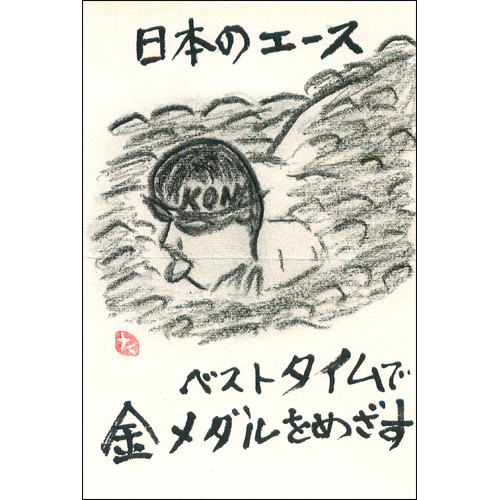 日本のエース
KON
ベストタイムで
金メダルをめざす